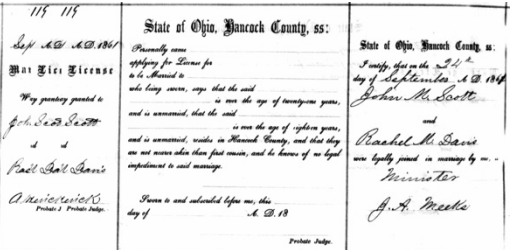 119 119
Sep A.D. A.D. 1861
Mar Lice License
Way grantery granted to
Joh Scod Scott
d d
Rail Dail Davis
Probate J Probate Judge.
State of Ohio, Hancock County, ss:
Personally came
applying for License for
to be Married to
who being sworn, says that the said
is over the age of twenty-one years,
and is unmarried, that the said
is over the age of eighteen years,
and is unmarried, resides in Hancock County, and that they
are not nearer akin than first cousin, and he knows of no legal
impediment to said marriage.
Sworn to and subscribed before me, this
day of A. D. 18
Probate Judge.
State of Ohio, Hancock County, ss:
I certify, that on the 24th
day of September A.D. 1861
John M. Scott
and
Rachel M. Davis
were legally joined in marriage by me
Minister
J. A. Meeks